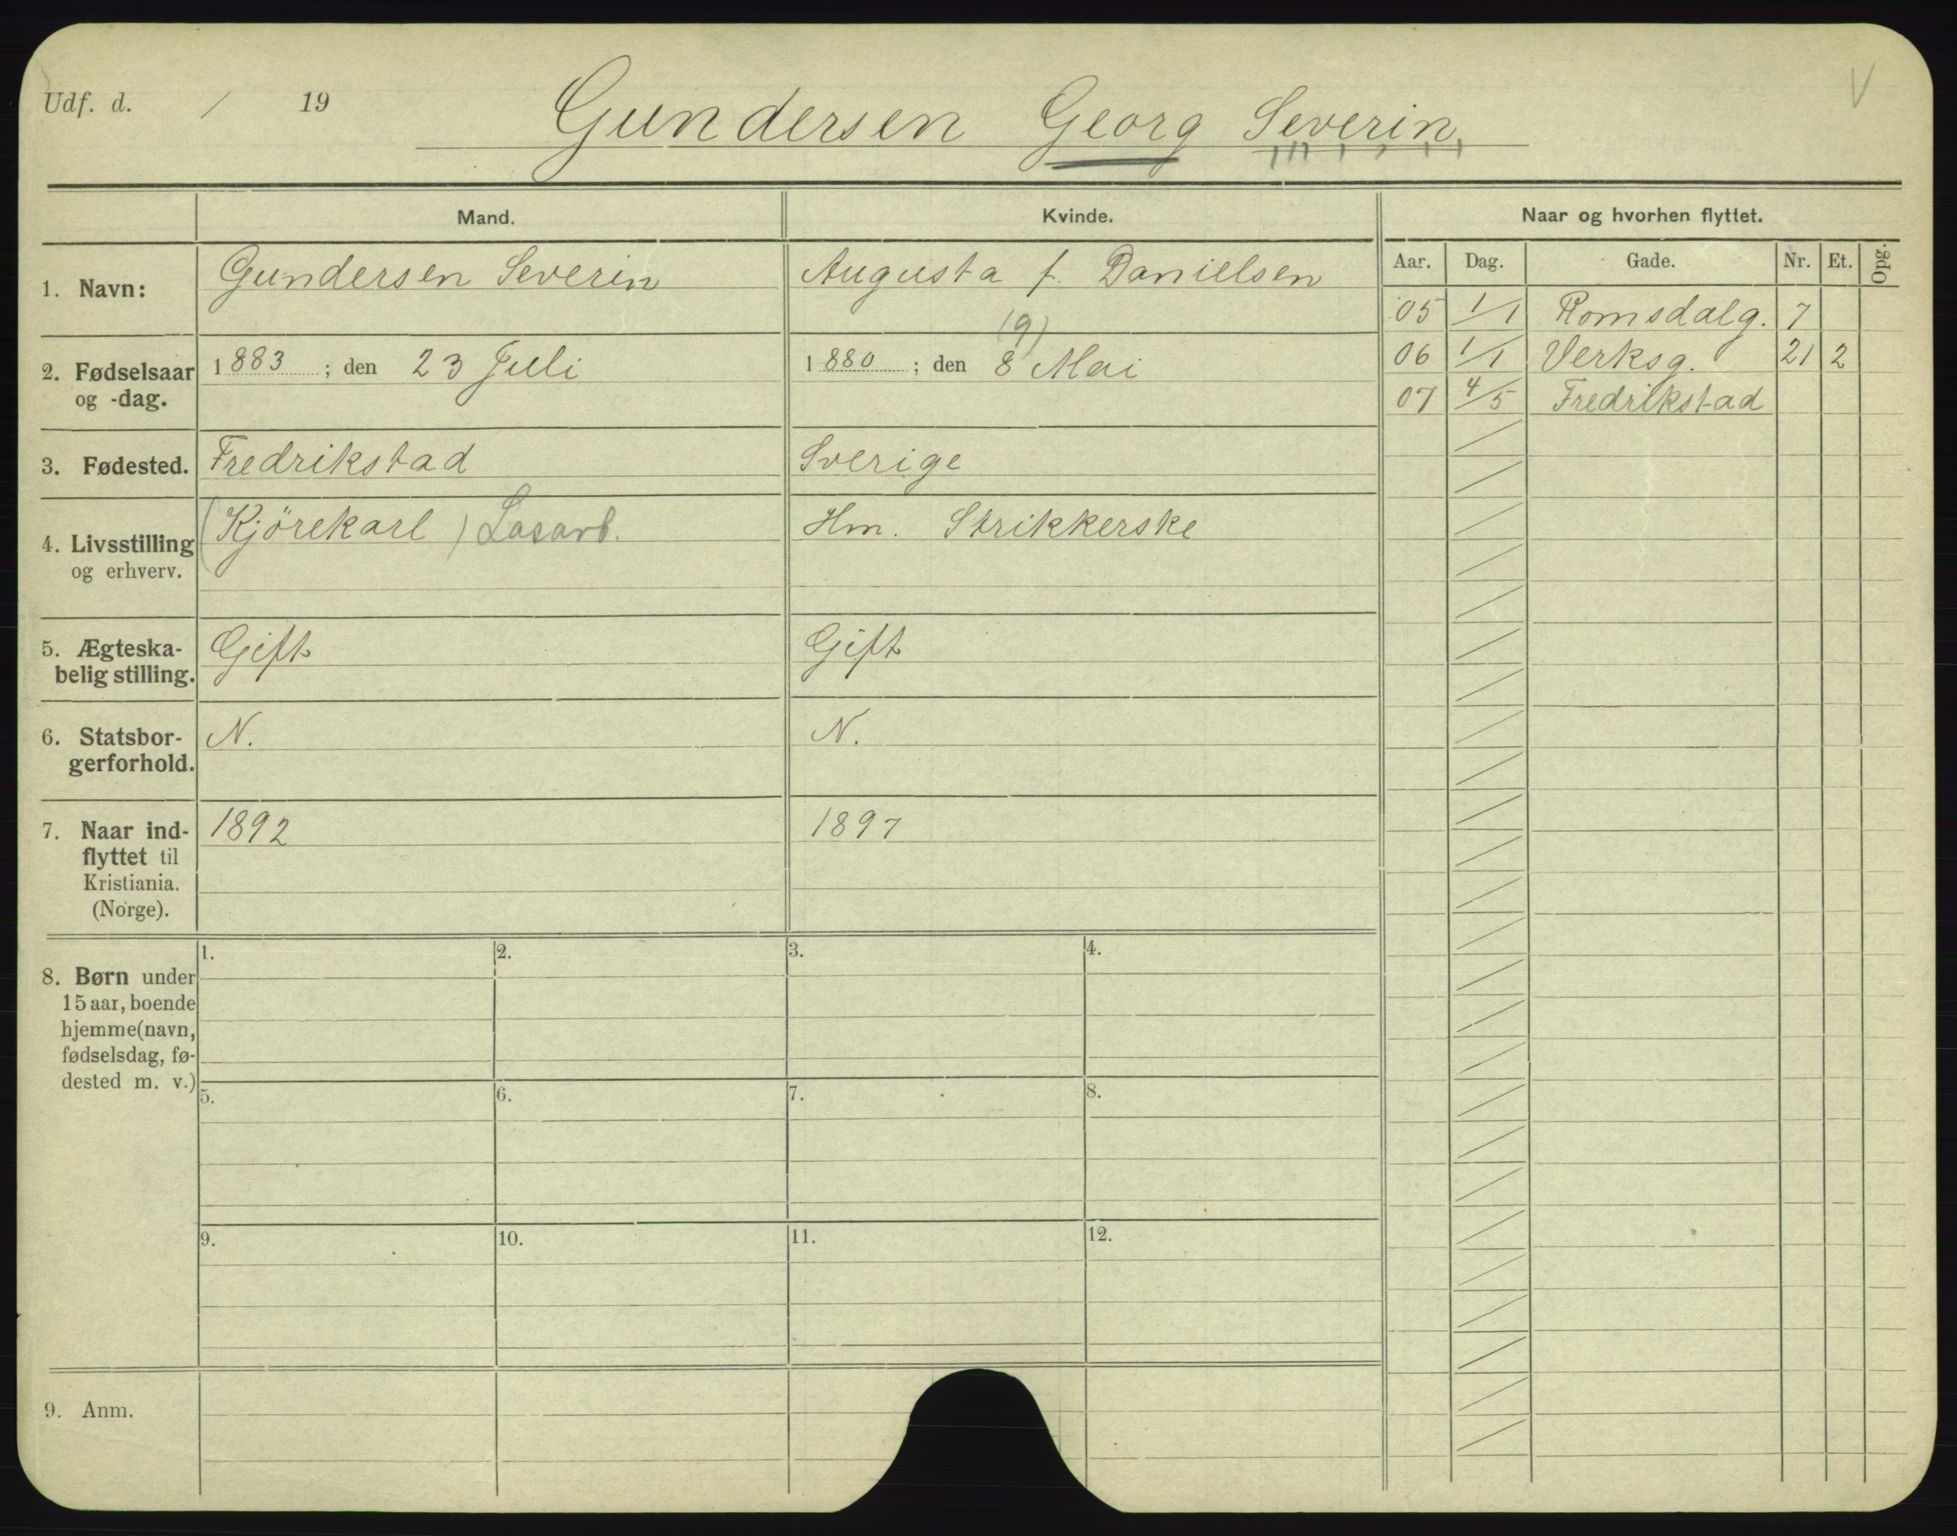 Udf. d. / 19
Gundersen Georg Severin
Mand.
Kvinde.
Naar og hvorhen flyttet.
Aar. Dag. Gade. Nr. Et. Opg.
1. Navn:
Gundersen Severin
Augusta f. Danielsen
2. Fødselsaar
og -dag.
1883 ; den 23 Juli
(9)
1880 ; den 8 Mai
3. Fødested.
Fredrikstad
Sverige
4. Livsstilling
og erhverv.
(Kjörekarl) Losarb.
Hm. Strikkerske
5. Ægteska-
belig stilling.
Gift
Gift
6. Statsbor-
gerforhold.
N.
N.
7. Naar ind-
flyttet til
Kristiania.
(Norge).
1892
1897
05 1/1 Romsdalg. 7
06 1/1 Verksg. 21 2
07 4/5 Fredrikstad
8. Børn under
15 aar, boende
hjemme (navn,
fødselsdag, fø-
dested m. v.)
1. 2. 3. 4.
5. 6. 7. 8.
9. 10. 11. 12.
9. Anm.
V